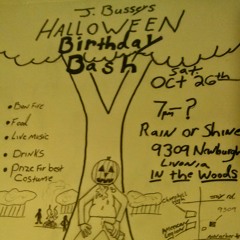 J. Bussey's
HALLOWEEN
Birthday
Bash
Sat.
Oct 26th
7pm-?
Rain or Shine
9309 Newburgh
Livonia
In the Woods
• Bon Fire
• Food
• Live Music
• Drinks
• Prize for best
Costume